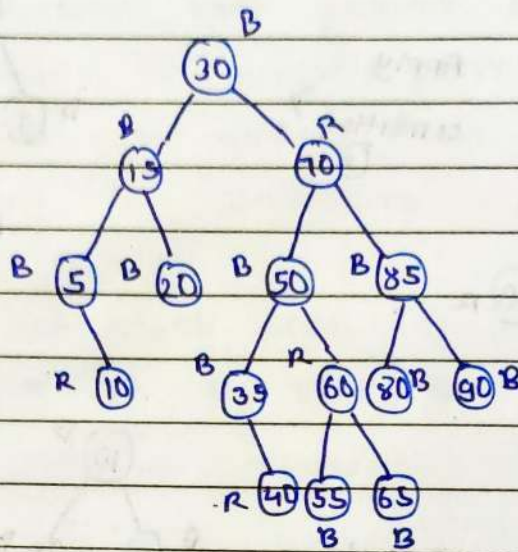 B
30
B R
15 70
B 5 B 20 B 50 B 85
B R
R 10 35 60 80 B 90 B
R 40 55 65
B B